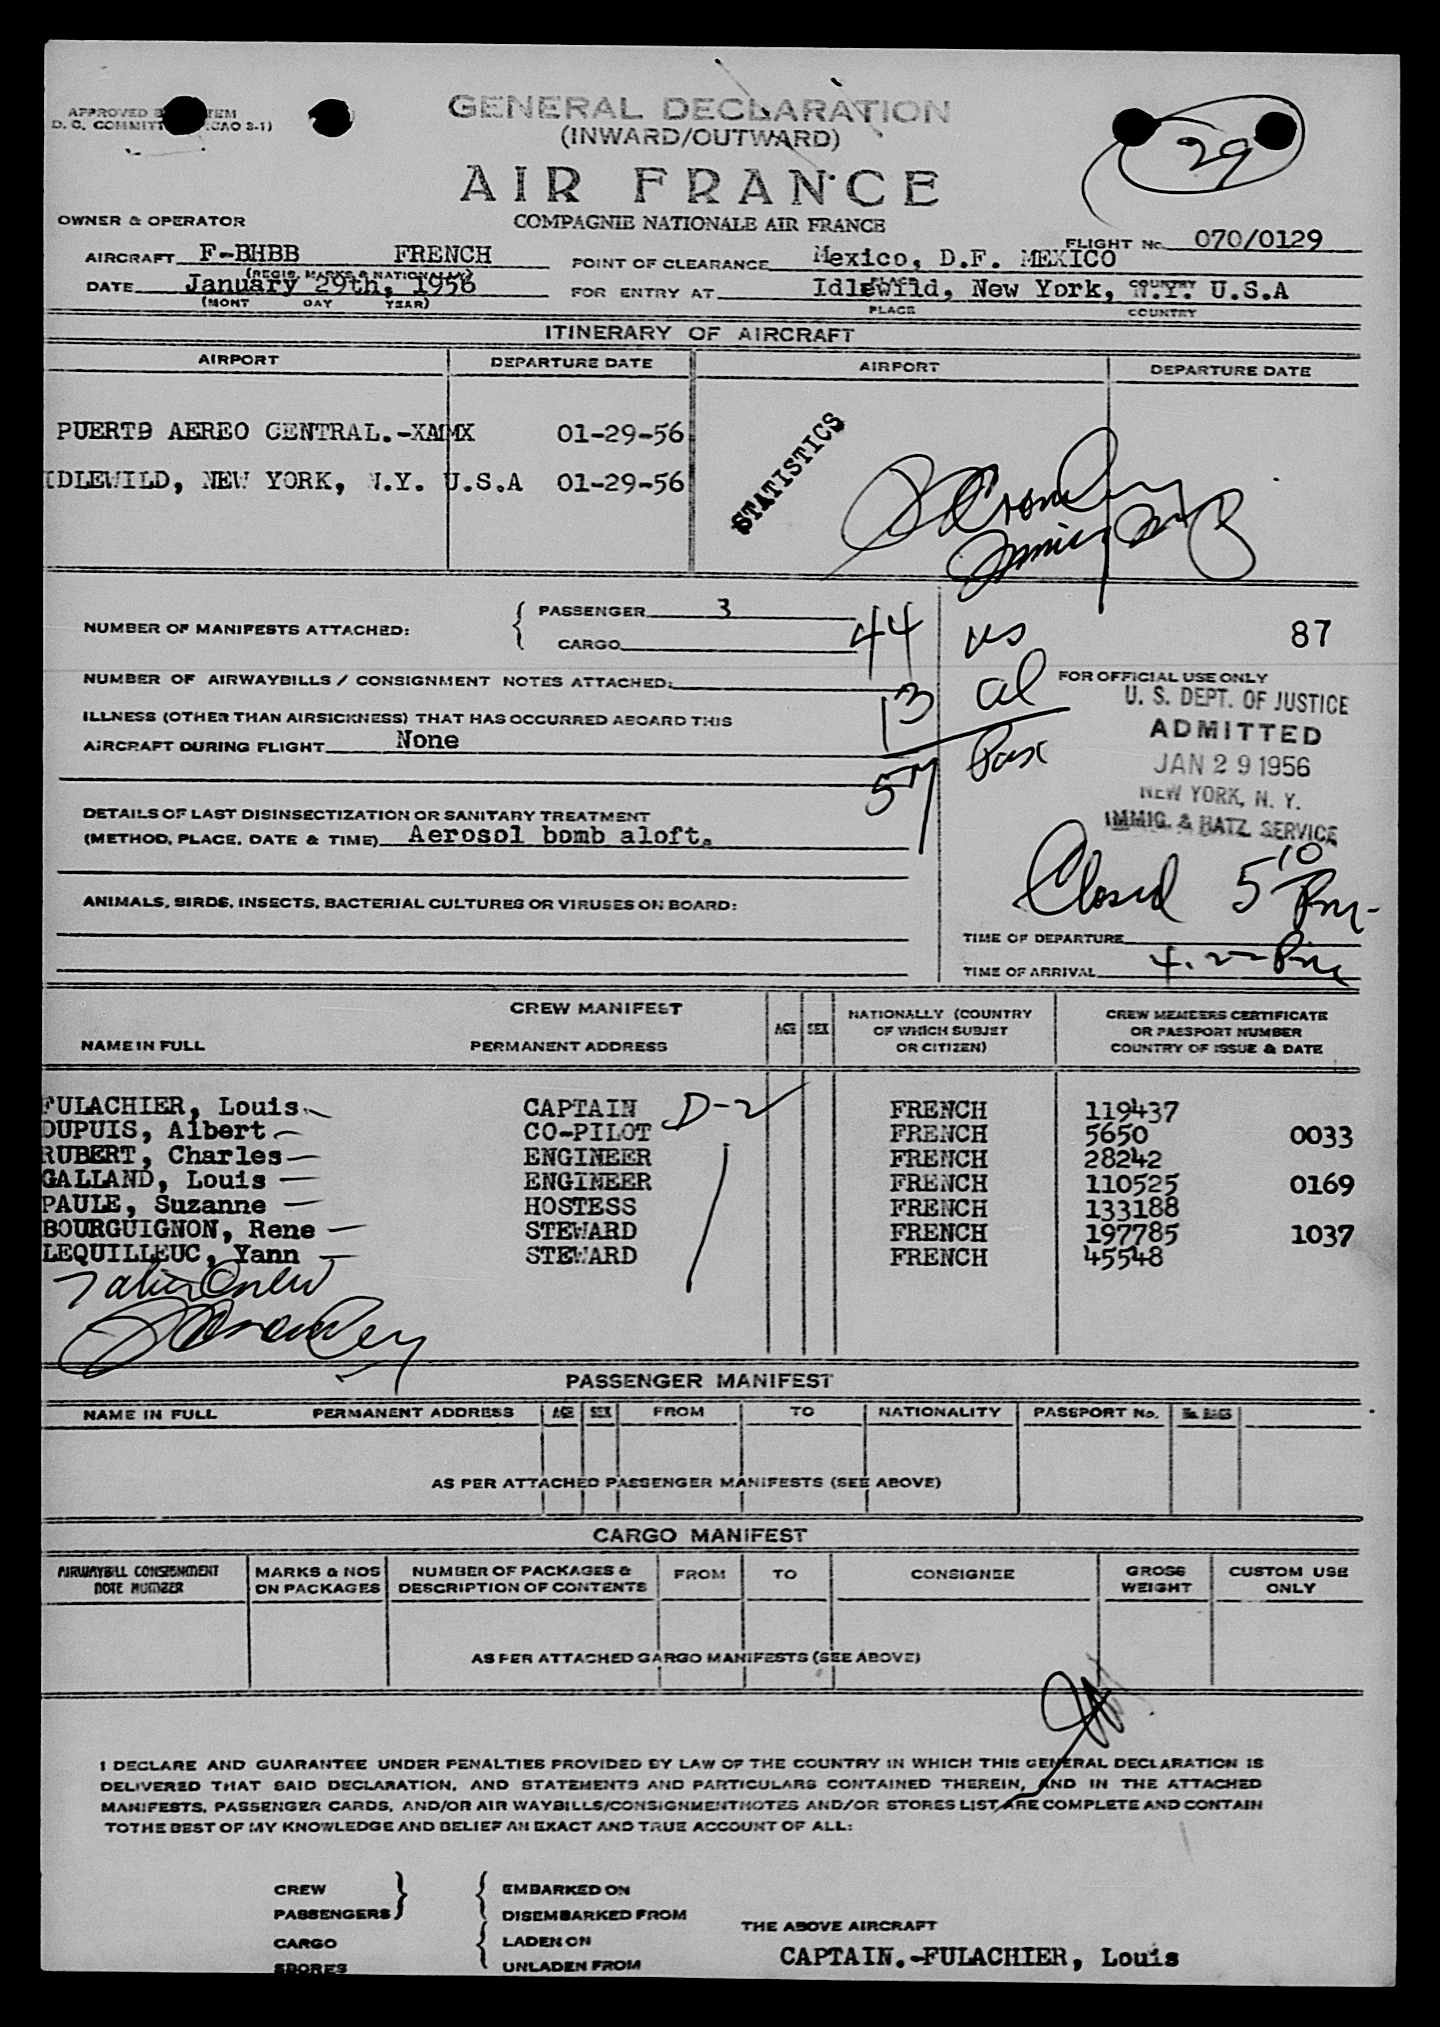 GENERAL DECLARATION
(INWARD/OUTWARD)
AIR FRANCE
COMPAGNIE NATIONALE AIR FRANCE
APPROVED
D. C. COMMITT ICAO 3-1)
29
OWNER & OPERATOR
FLIGHT No. 070/0129
AIRCRAFT F-BHBB FRENCH
(REGIS. MARKS & NATIONALITY)
POINT OF CLEARANCE Mexico, D.F. MEXICO
PLACE COUNTRY
DATE January 29th, 1956
(MONT DAY YEAR)
FOR ENTRY AT Idlewild, New York, N.Y. U.S.A
PLACE COUNTRY
ITINERARY OF AIRCRAFT
AIRPORT DEPARTURE DATE AIRPORT DEPARTURE DATE
PUERTO AEREO CENTRAL.-XAMMX 01-29-56
IDLEWILD, NEW YORK, N.Y. U.S.A 01-29-56
STATISTICS
NUMBER OF MANIFESTS ATTACHED: PASSENGER 3
CARGO
44 us
87
NUMBER OF AIRWAYBILLS / CONSIGNMENT NOTES ATTACHED:
13 al
FOR OFFICIAL USE ONLY
U. S. DEPT. OF JUSTICE
ADMITTED
JAN 29 1956
NEW YORK, N. Y.
IMMIG. & NATZ. SERVICE
ILLNESS (OTHER THAN AIRSICKNESS) THAT HAS OCCURRED ABOARD THIS
AIRCRAFT DURING FLIGHT None
57 Pax
DETAILS OF LAST DISINSECTIZATION OR SANITARY TREATMENT
(METHOD, PLACE, DATE & TIME) Aerosol bomb aloft.
Closed 5 10 Pm-
ANIMALS, BIRDS, INSECTS, BACTERIAL CULTURES OR VIRUSES ON BOARD:
TIME OF DEPARTURE
TIME OF ARRIVAL 4.22 Pm
CREW MANIFEST
NAME IN FULL PERMANENT ADDRESS AGE SEX NATIONALLY (COUNTRY OF WHICH SUBJET OR CITIZEN) CREW MEMBERS CERTIFICATE OR PASSPORT NUMBER COUNTRY OF ISSUE & DATE
FULACHIER, Louis CAPTAIN D-2 FRENCH 119437
DUPUIS, Albert CO-PILOT FRENCH 5650 0033
RUBERT, Charles ENGINEER FRENCH 28242
GALLAND, Louis ENGINEER FRENCH 110525 0169
PAULE, Suzanne HOSTESS FRENCH 133188
BOURGUIGNON, Rene STEWARD FRENCH 197785 1037
LEQUILLEUC, Yann STEWARD FRENCH 45548
PASSENGER MANIFEST
NAME IN FULL PERMANENT ADDRESS AGE SEX FROM TO NATIONALITY PASSPORT No. No. BAGS
AS PER ATTACHED PASSENGER MANIFESTS (SEE ABOVE)
CARGO MANIFEST
AIRWAYBILL CONSIGNMENT NOTE NUMBER MARKS & NOS ON PACKAGES NUMBER OF PACKAGES & DESCRIPTION OF CONTENTS FROM TO CONSIGNEE GROSS WEIGHT CUSTOM USE ONLY
AS PER ATTACHED CARGO MANIFESTS (SEE ABOVE)
I DECLARE AND GUARANTEE UNDER PENALTIES PROVIDED BY LAW OF THE COUNTRY IN WHICH THIS GENERAL DECLARATION IS
DELIVERED THAT SAID DECLARATION, AND STATEMENTS AND PARTICULARS CONTAINED THEREIN, AND IN THE ATTACHED
MANIFESTS, PASSENGER CARDS, AND/OR AIR WAYBILLS/CONSIGNMENTNOTES AND/OR STORES LIST, ARE COMPLETE AND CONTAIN
TOTHE BEST OF MY KNOWLEDGE AND BELIEF AN EXACT AND TRUE ACCOUNT OF ALL:
CREW EMBARKED ON
PASSENGERS DISEMBARKED FROM
THE ABOVE AIRCRAFT
CARGO LADEN ON
SBORES UNLADEN FROM
CAPTAIN.-FULACHIER, Louis